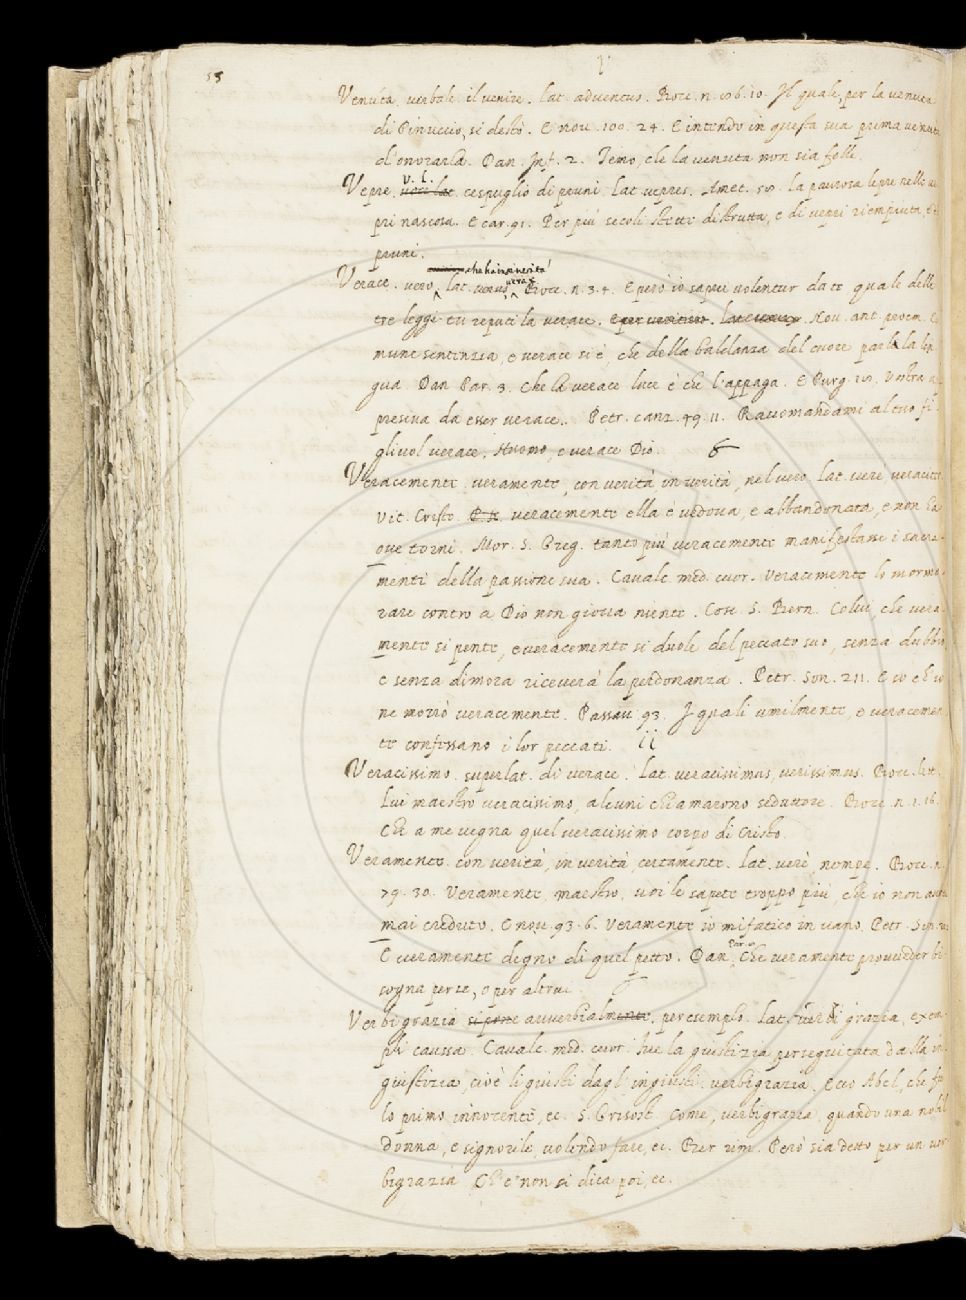 58
V
Venuta. verbale. il venire. lat. adventus. Bocc. n. 106. 10. Il quale, per la venuta
di Pinuccio, si destò. E nov. 100. 24. E intendo in questa sua prima venuta
d'onorarla. Dan. Inf. 2. Temo, che la venuta non sia folle.
V. L.
Vepre. voce lat. cespuglio di pruni. lat. vepres. Amet. 58. la paurosa lepre nelle ve
pri nascosa. E car. 91. Per più secoli stette distrutta, e di vepri riempiuta, e
pruni.
che ha in se verità
verax
Verace. vero, lat. verus, Bocc. n. 3. 4. E però io saprei volentier da te quale delle
tre leggi tu reputi la verace. Nov. ant. proem. E
mune sentenzia, e verace si è, che della baldanza del cuore parla la lin
gua. Dan. Par. 3. Che la verace luce è che l'appaga. E Purg. 18. Vostra a
prensiva da esser verace. Petr. canz. 49. 11. Raccomandami al tuo fi-
gliuol verace, Huomo, e verace Dio. 6
Veracemente. veramente, con verità, in verità, nel vero. lat. verè, veraciter.
Vit. Cristo. veracemente ella è vedova, e abbandonata, e non ha
ove torni. Mor. S. Greg. tanto più veracemente manifestasse i sacra-
menti della passione sua. Cavalc. med. cuor. Veracemente lo mormo-
rare contro a Dio non giova niente. Cose S. Bern. Colui che vera-
mente si pente, e veracemente si duole del peccato suo, senza dubbio
e senza dimora riceverà la perdonanza. Petr. Son. 211. E so ch'io
ne morrò veracemente. Passav. 93. I quali umilmente, e veracemen
te confessano i lor peccati. ii
Veracissimo. superlat. di verace. lat. veracissimus, verissimus. Bocc. lett.
Lui maestro veracissimo, alcuni chiamarono seduttore. Bocc. n. 1. 16.
Che a me vegna quel veracissimo corpo di Cristo.
Veramente. con verità, in verità, certamente. lat. verè, nempe. Bocc. n.
79. 30. Veramente, maestro, voi le sapete troppo più, che io non avrei
mai creduto. E nov. 93. 6. Veramente io mi fatico in vano. Petr. Son.
E veramente degno di quel petto. Dan. Par. Che veramente provveder bi
sogna per se, o per altrui.
Verbigrazia si pone avverbialmente, per esempio. lat. verbi grazia, exem
pli caussa. Cavalc. med. cuor. Fue la giustizia perseguitata dalla in
giustizia, cioè li giusti dagl' ingiusti. verbigrazia. Ecco Abel, che fu
lo primo innocente, ec. S. Grisost. Come, verbigrazia, quando una nobil
donna, e signorile, volendo fare, ec. Ber. rim. Però sia detto per un ver
bigrazia Che non si dica poi, ec.